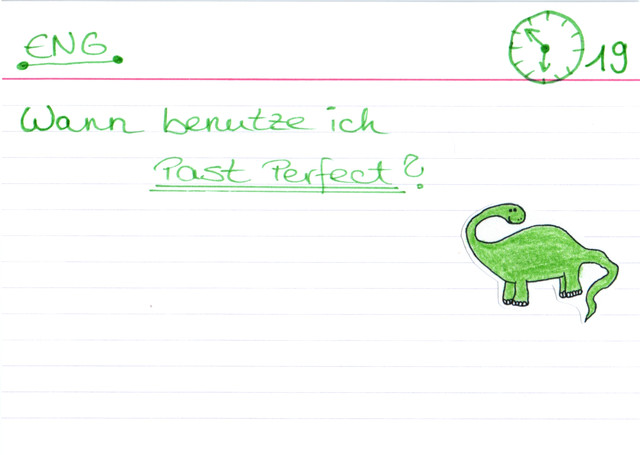 ENG
19
Wann benutze ich
Past Perfect?